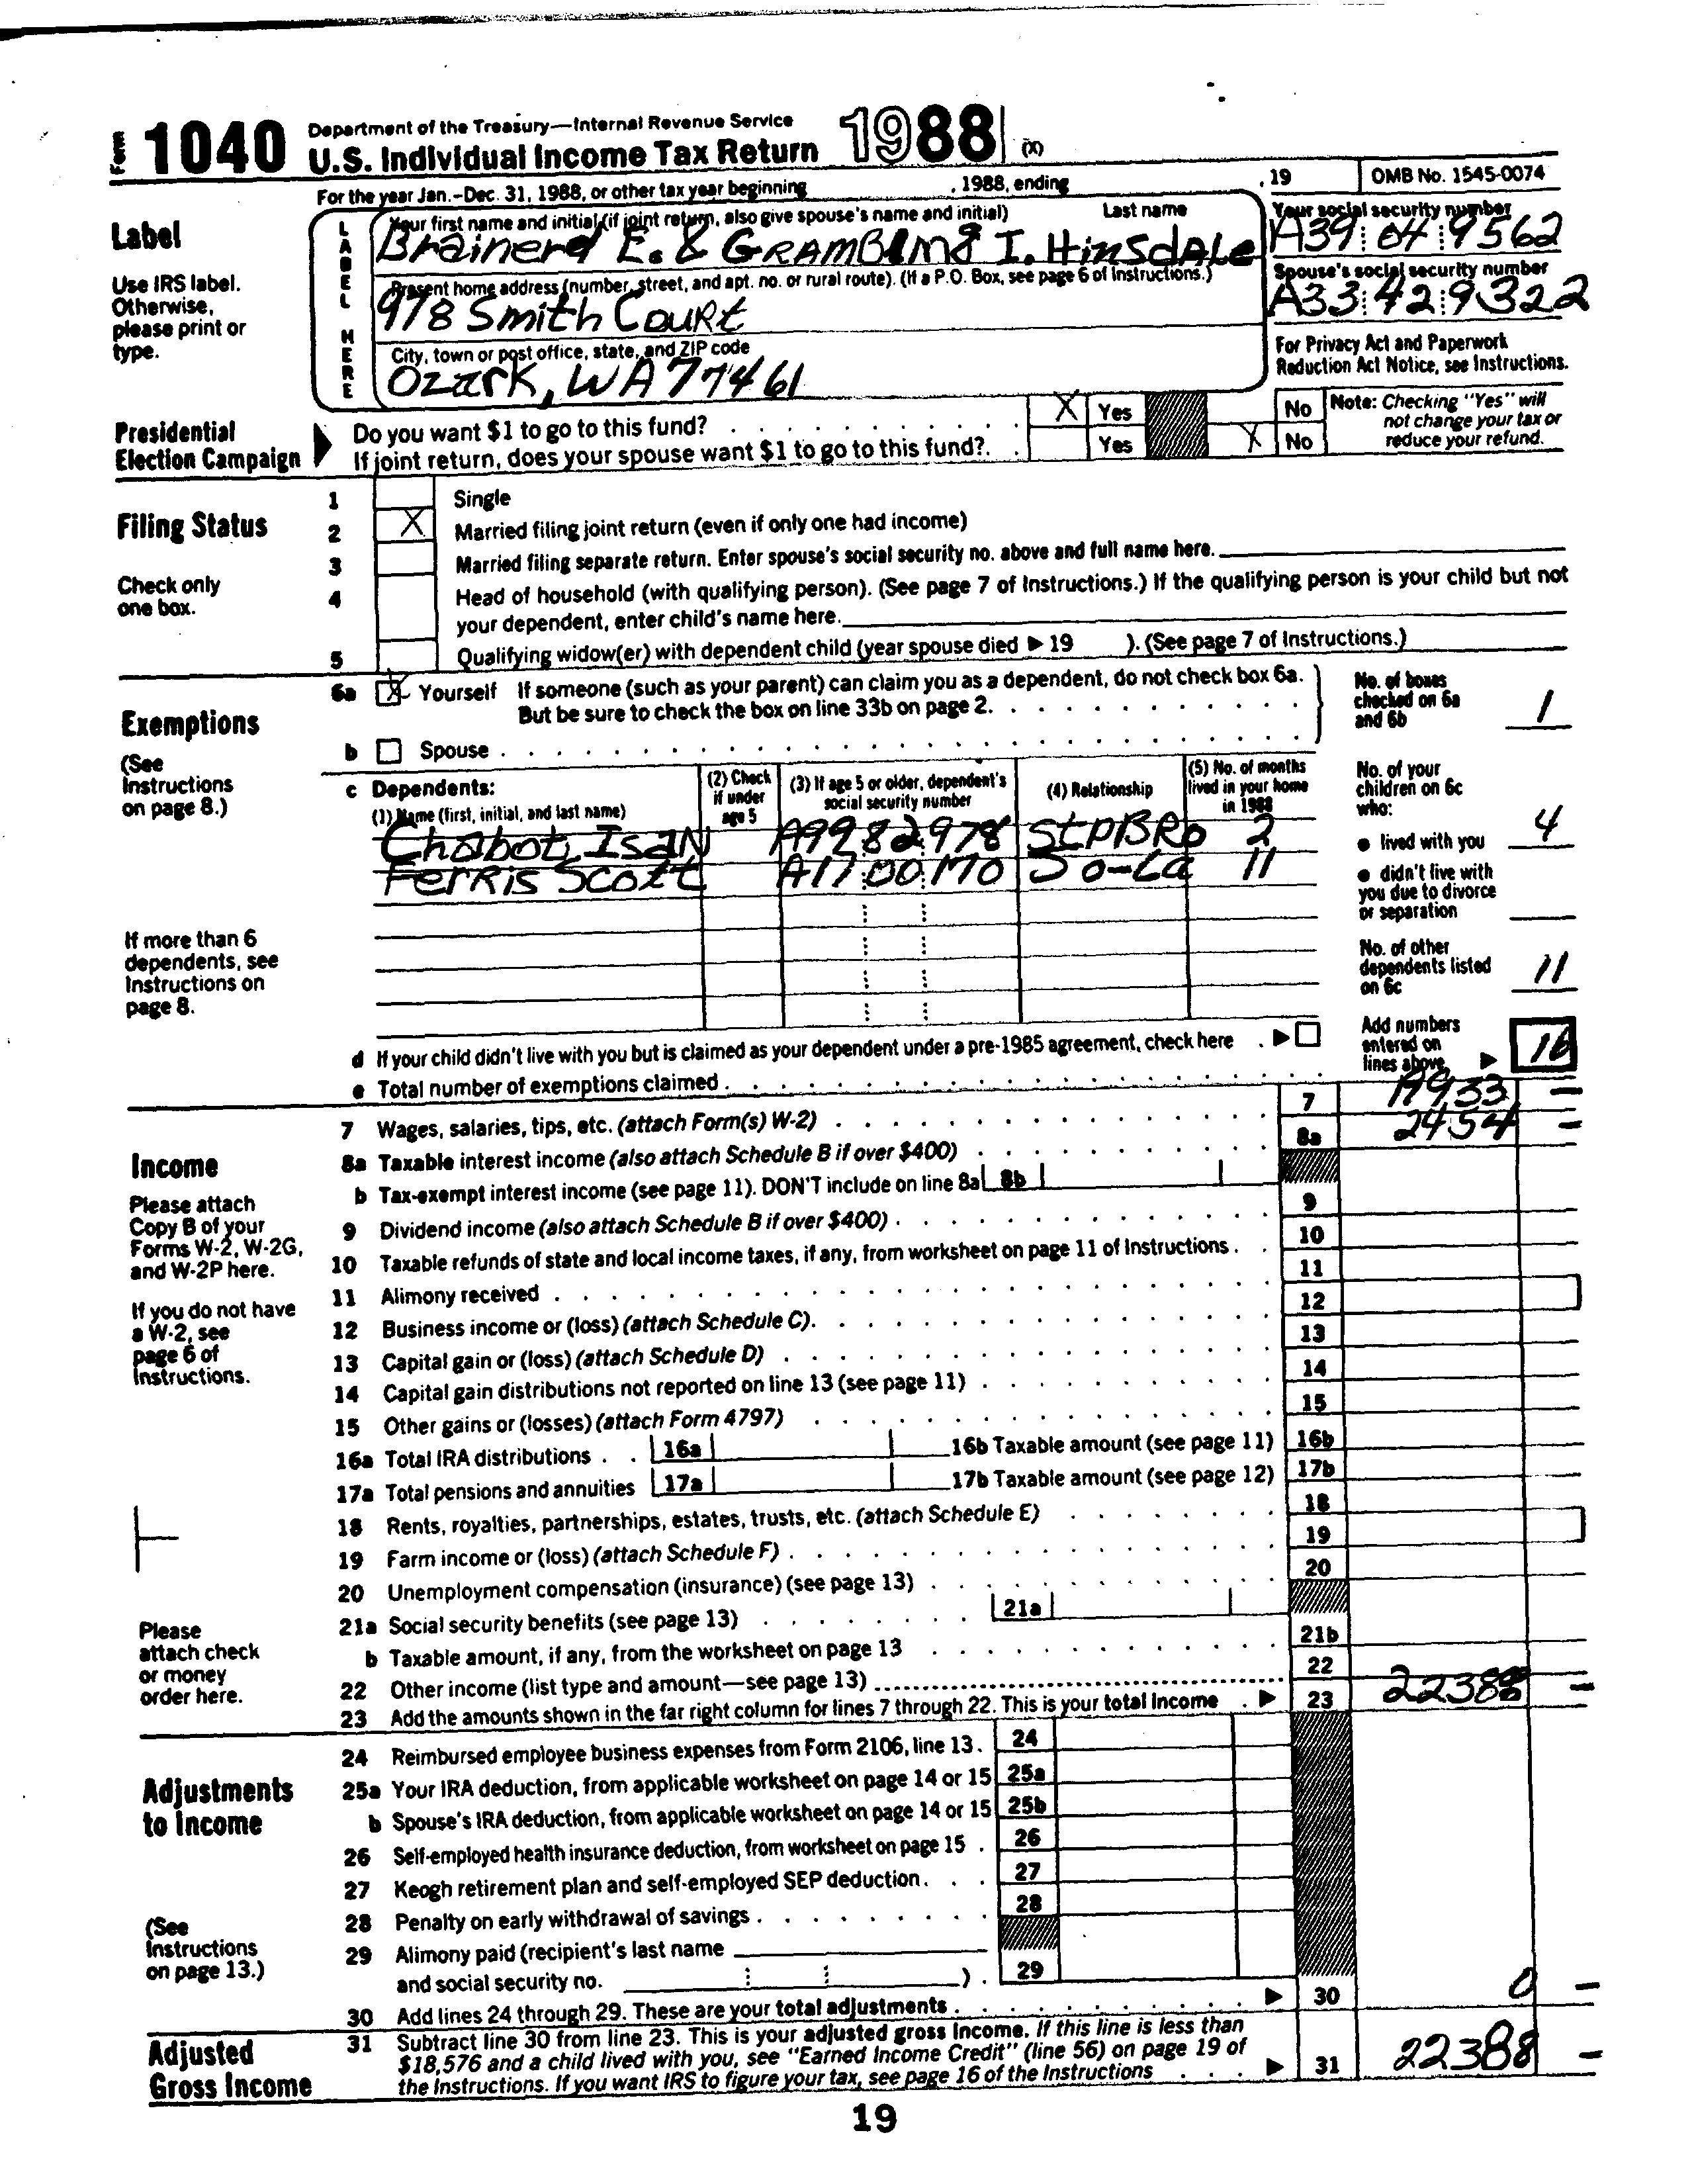 Form 1040 Department of the Treasury—Internal Revenue Service
U.S. Individual Income Tax Return 1988 (X)
For the year Jan.–Dec. 31, 1988, or other tax year beginning , 1988, ending , 19 OMB No. 1545-0074
Label
Use IRS label.
Otherwise,
please print or
type.
LABEL HERE
Your first name and initial (if joint return, also give spouse's name and initial) Last name
Brainerd E. & GRAMBLING I. HINSdALe
Your social security number
A39 04 9562
Present home address (number, street, and apt. no. or rural route). (If a P.O. Box, see page 6 of Instructions.)
978 Smith Court
Spouse's social security number
A33 42 9322
City, town or post office, state, and ZIP code
Ozark, WA 77461
For Privacy Act and Paperwork
Reduction Act Notice, see Instructions.
Presidential
Election Campaign
Do you want $1 to go to this fund? X Yes No
If joint return, does your spouse want $1 to go to this fund? Yes X No
Note: Checking "Yes" will
not change your tax or
reduce your refund.
Filing Status
Check only
one box.
1 Single
2 X Married filing joint return (even if only one had income)
3 Married filing separate return. Enter spouse's social security no. above and full name here.
4 Head of household (with qualifying person). (See page 7 of Instructions.) If the qualifying person is your child but not
your dependent, enter child's name here.
5 Qualifying widow(er) with dependent child (year spouse died ▶ 19 ). (See page 7 of Instructions.)
Exemptions
(See
Instructions
on page 8.)
If more than 6
dependents, see
Instructions on
page 8.
6a X Yourself If someone (such as your parent) can claim you as a dependent, do not check box 6a.
But be sure to check the box on line 33b on page 2.
b Spouse
No. of boxes
checked on 6a
and 6b 1
c Dependents:
(1) Name (first, initial, and last name)
(2) Check
if under
age 5
(3) If age 5 or older, dependent's
social security number
(4) Relationship
(5) No. of months
lived in your home
in 1988
Chabot, Isan A99 82 978 StPBRo 2
Ferris Scott A17 00 170 So-La 11
No. of your
children on 6c
who:
● lived with you 4
● didn't live with
you due to divorce
or separation
No. of other
dependents listed
on 6c 11
d If your child didn't live with you but is claimed as your dependent under a pre-1985 agreement, check here ▶
e Total number of exemptions claimed
Add numbers
entered on
lines above ▶ 16
Income
Please attach
Copy B of your
Forms W-2, W-2G,
and W-2P here.
If you do not have
a W-2, see
page 6 of
Instructions.
Please
attach check
or money
order here.
7 Wages, salaries, tips, etc. (attach Form(s) W-2) 7 19933 –
8a Taxable interest income (also attach Schedule B if over $400) 8a 2454 –
b Tax-exempt interest income (see page 11). DON'T include on line 8a 8b
9 Dividend income (also attach Schedule B if over $400) 9
10 Taxable refunds of state and local income taxes, if any, from worksheet on page 11 of Instructions 10
11 Alimony received 11
12 Business income or (loss) (attach Schedule C) 12
13 Capital gain or (loss) (attach Schedule D) 13
14 Capital gain distributions not reported on line 13 (see page 11) 14
15 Other gains or (losses) (attach Form 4797) 15
16a Total IRA distributions 16a 16b Taxable amount (see page 11) 16b
17a Total pensions and annuities 17a 17b Taxable amount (see page 12) 17b
18 Rents, royalties, partnerships, estates, trusts, etc. (attach Schedule E) 18
19 Farm income or (loss) (attach Schedule F) 19
20 Unemployment compensation (insurance) (see page 13) 20
21a Social security benefits (see page 13) 21a
b Taxable amount, if any, from the worksheet on page 13 21b
22 Other income (list type and amount—see page 13) 22
23 Add the amounts shown in the far right column for lines 7 through 22. This is your total income ▶ 23 22388 –
Adjustments
to Income
(See
Instructions
on page 13.)
24 Reimbursed employee business expenses from Form 2106, line 13 24
25a Your IRA deduction, from applicable worksheet on page 14 or 15 25a
b Spouse's IRA deduction, from applicable worksheet on page 14 or 15 25b
26 Self-employed health insurance deduction, from worksheet on page 15 26
27 Keogh retirement plan and self-employed SEP deduction 27
28 Penalty on early withdrawal of savings 28
29 Alimony paid (recipient's last name
and social security no. ) 29
30 Add lines 24 through 29. These are your total adjustments ▶ 30 0 –
Adjusted
Gross Income
31 Subtract line 30 from line 23. This is your adjusted gross income. If this line is less than
$18,576 and a child lived with you, see "Earned Income Credit" (line 56) on page 19 of
the Instructions. If you want IRS to figure your tax, see page 16 of the Instructions ▶ 31 22388 –
19